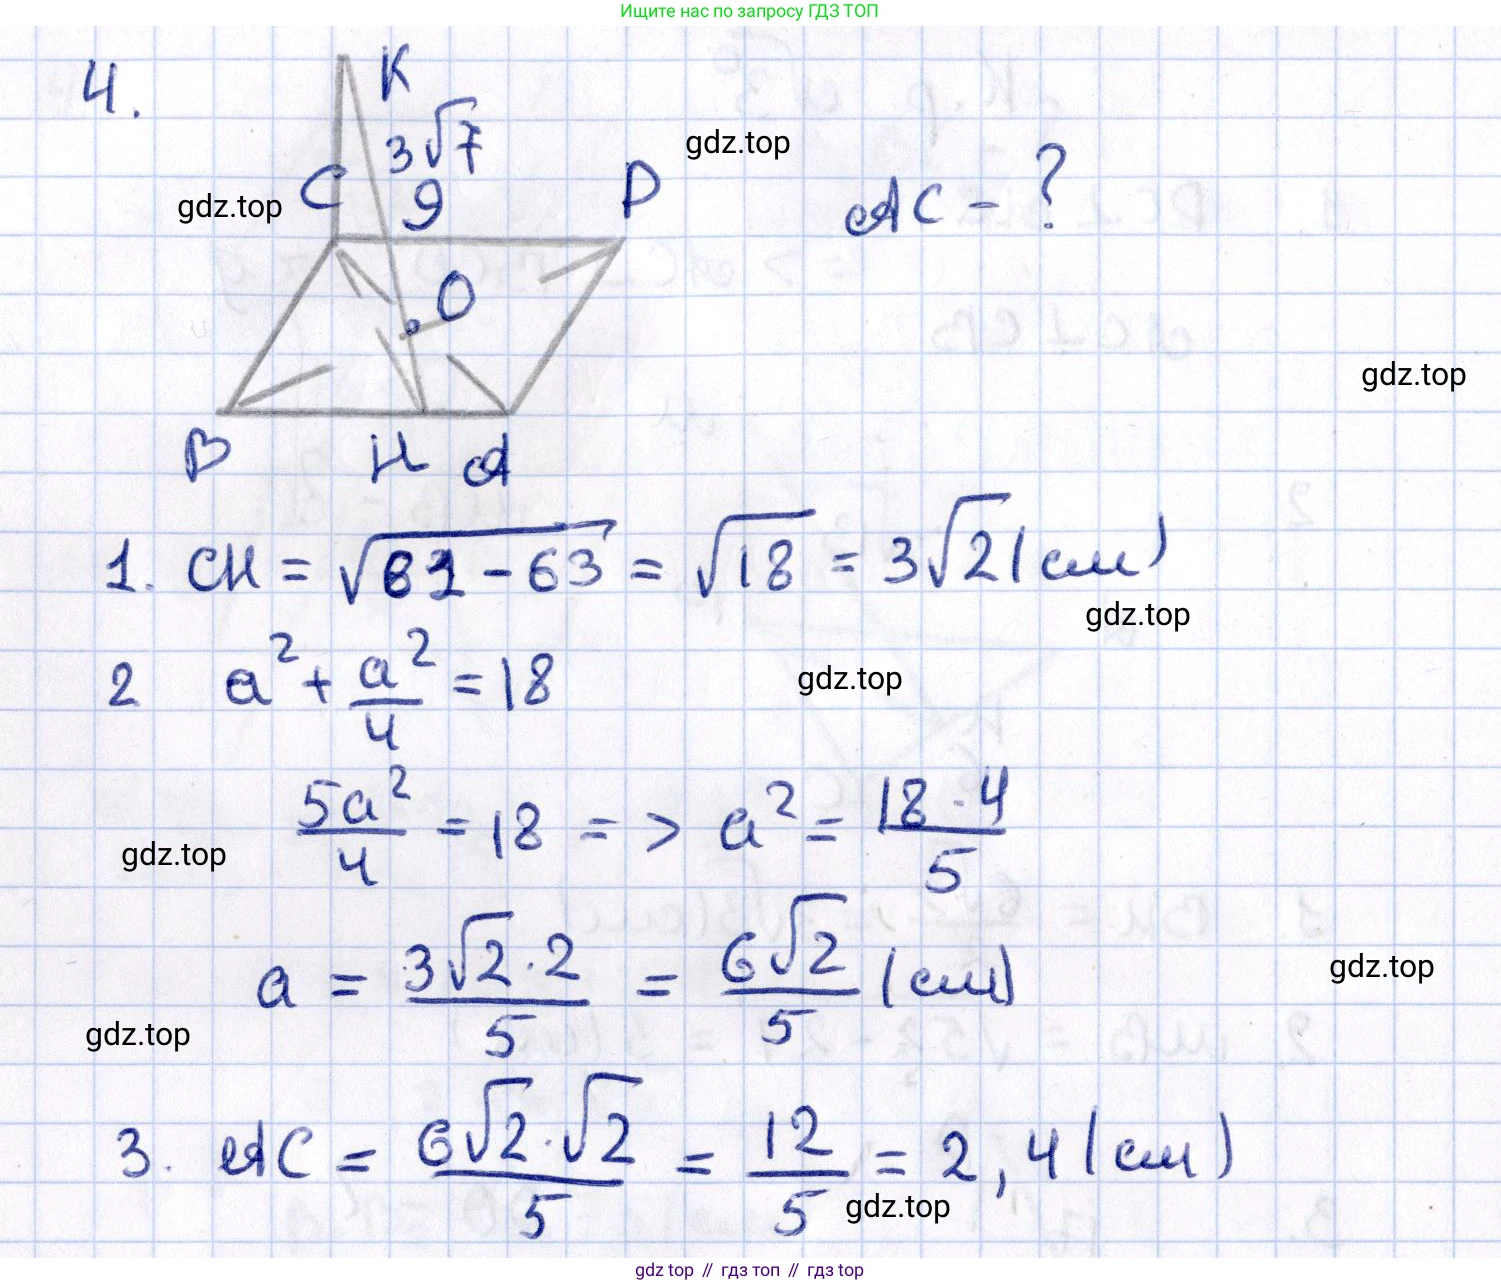 Ищите нас по запросу ГДЗ ТОП
4.
K
3√7
gdz.top
C
9
D
gdz.top
AC - ?
O
gdz.top
B
H
A
1. CH = √81 - 63 = √18 = 3√2 (см)
gdz.top
2 a² + a²/4 = 18
gdz.top
5a²/4 = 18 => a² = 18·4/5
gdz.top
a = 3√2·2/5 = 6√2/5 (см)
gdz.top
gdz.top
3. AC = 6√2·√2/5 = 12/5 = 2,4 (см)
gdz.top
gdz top // гдз топ // гдз top